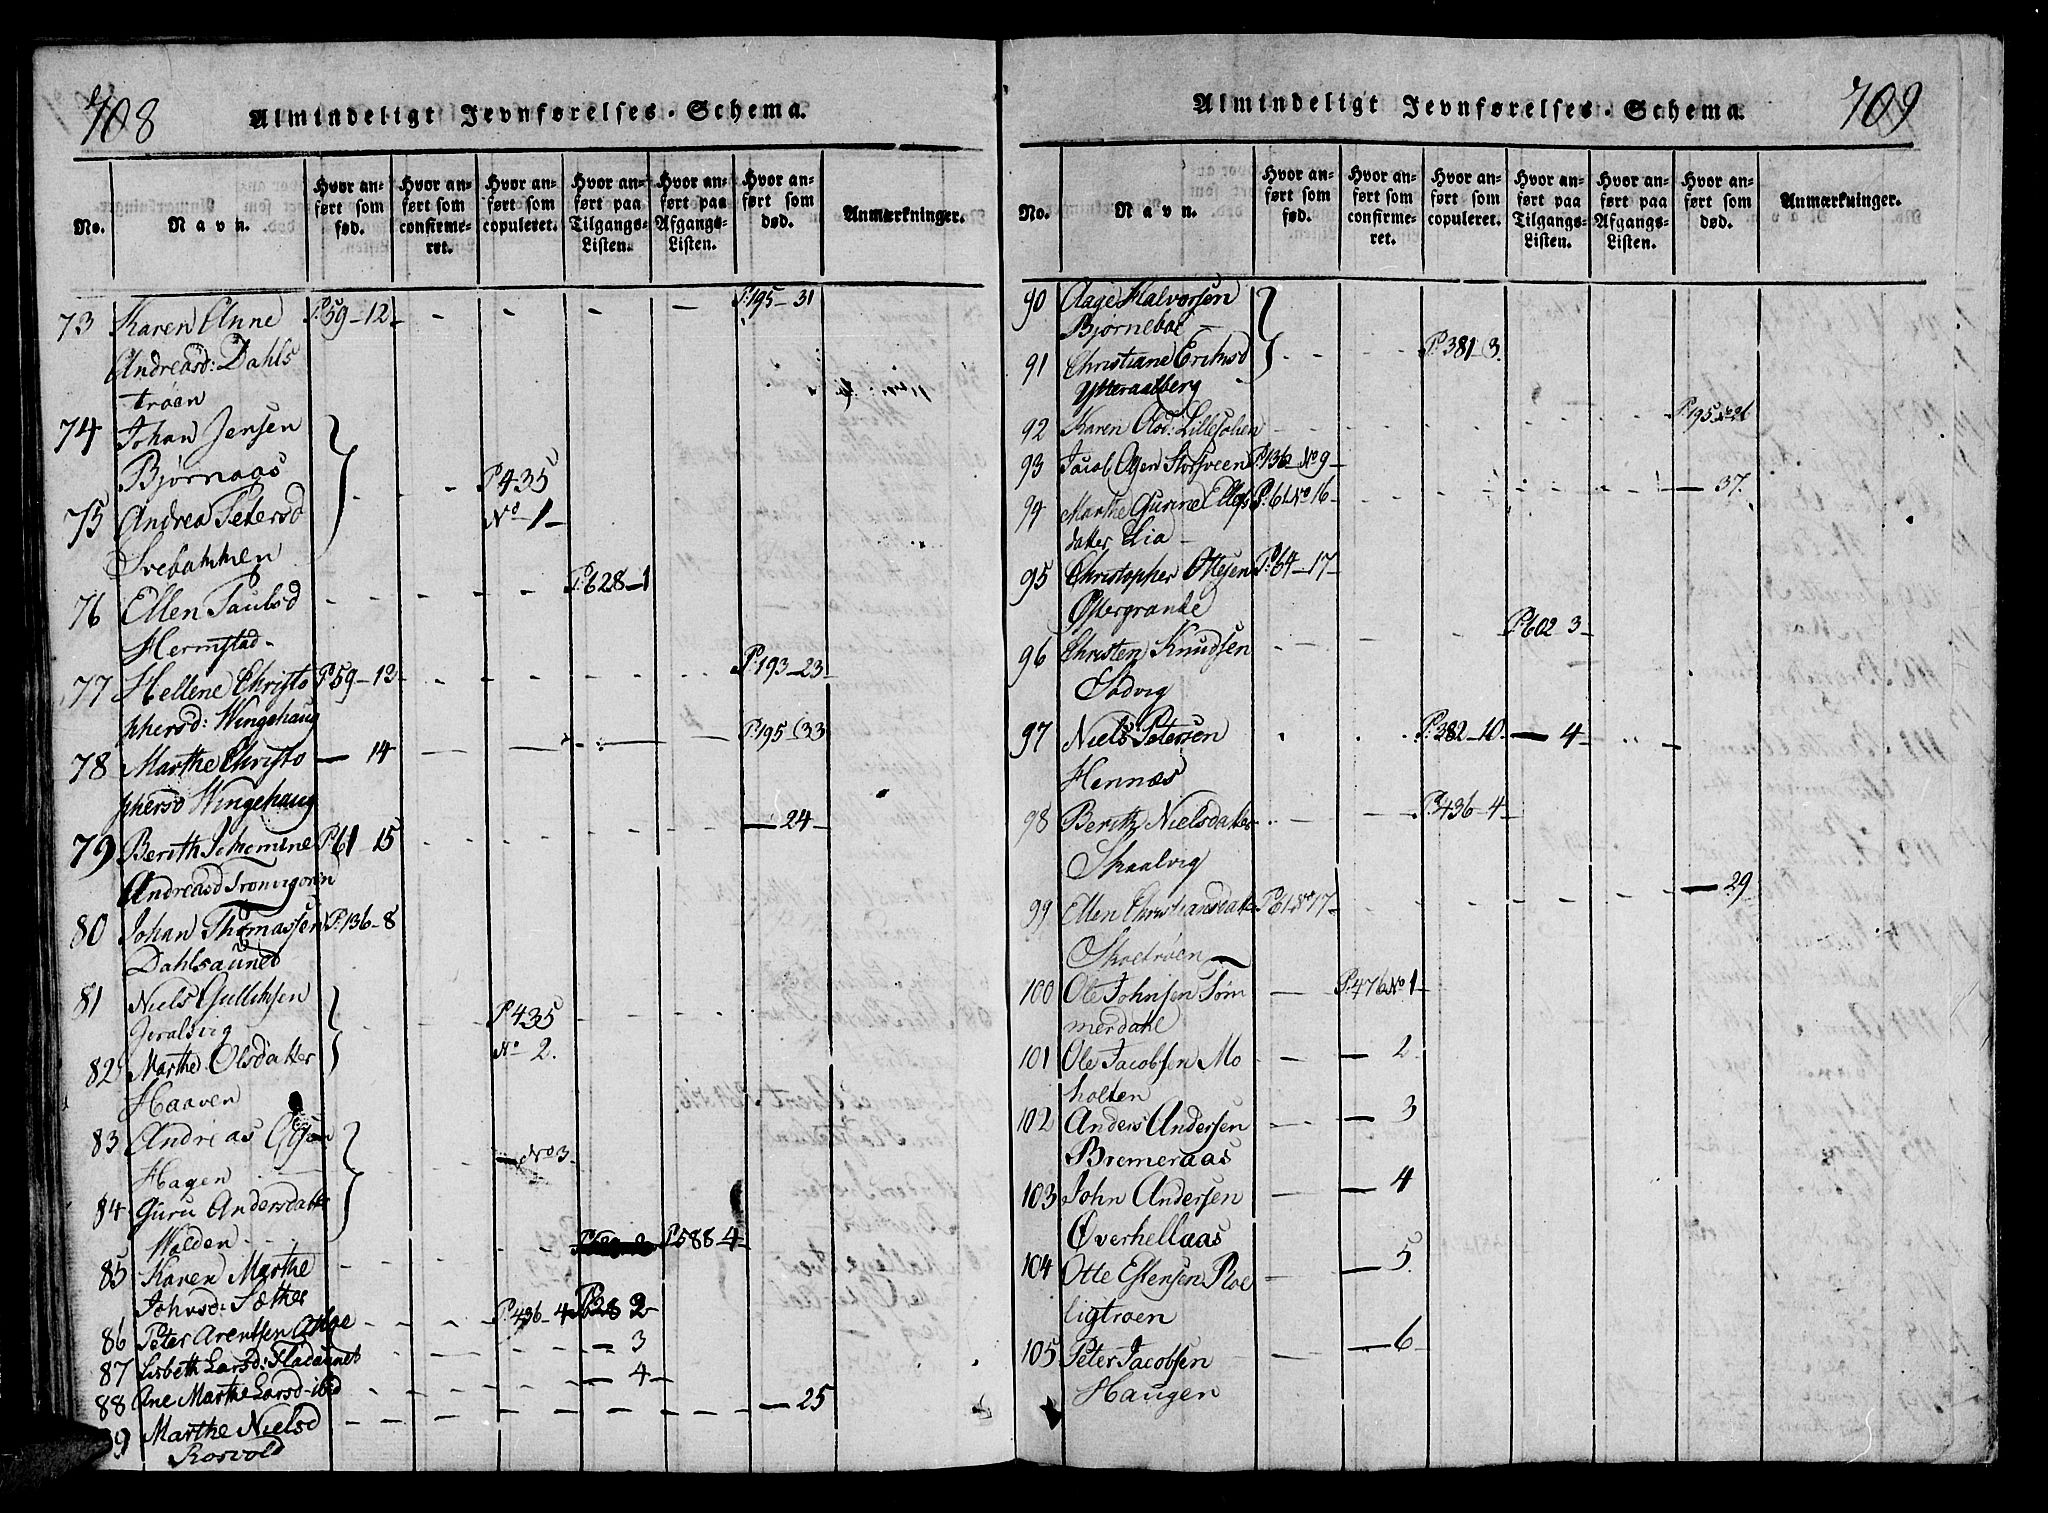 708
Almindeligt Jevnførelses-Schema.
No.
Navn.
Hvor anført som fød.
Hvor anført som confirmeret.
Hvor anført som copuleret.
Hvor anført paa Tilgangs-Listen.
Hvor anført paa Afgangs-Listen.
Hvor anført som død.
Anmærkninger.
73 Karen Anne P.59-12 P.195-31
Andreasd: Dahls
trøen
74 Johan Jensen
Bjørnaas P.435
75 Andrea Petersd No 1
Svebakken
76 Ellen Paulsd P.628-1
Hermstad
77 Hellene Christo P.59-13 P.193-23
phersd: Wingehaug
78 Marthe Christo — 14 P.195-33
phersd Wingehaug
79 Berith P.61-15 — 24
Andreasd
80 Johan Thomassen P.136-8
Dahlsaunet
81 Niels Gulliksen P.435
82 Marthe Olsdatter No 2.
Haaven
83 Andreas
Hagen — No 3
84 Guru Andersdatter
Wolden
85 Karen Marthe P.588-4
Johnsd: Sæther
86 Peter Arentsen P.436-4 2
87 Lisbeth Larsd: Flacaunet — 3
88 Ane Marthe Larsd ibid — 4
89 Marthe Nielsd — 25
Rosvold
709
Almindeligt Jevnførelses-Schema.
No.
Navn.
Hvor anført som fød.
Hvor anført som confirmeret.
Hvor anført som copuleret.
Hvor anført paa Tilgangs-Listen.
Hvor anført paa Afgangs-Listen.
Hvor anført som død.
Anmærkninger.
90 Aage Halvorsen
Bjørneboe P.381-3
91 Christiane Ericksd
Ytteraalberg
92 Karen Olsd: P.195 No 26
93 Jacob Storsveen P.136 No 9
94 Marthe Gurine Ellefs P.61 No 16 — 37
datter Lia
95 Christopher Ottesen P.64-17
Østergrande
96 Christen Knudsen P.602-3
Sødvig
97 Niels Petersen P.382-10 — 4
Hennæs
98 Berith Nielsdatter P.436-4
Skaalvig
99 Ellen Christiansdatter P.61 No 17 — 29
100 Ole Johnsen Tøm P.476 No 1
merdahl
101 Ole Jacobsen Mo — 2
holten
102 Anders Andersen — 3
Bremeraas
103 John Andersen — 4
Øverhellaas
104 Otte Estensen Roe — 5
ligtroen
105 Peter Jacobsen — 6
Haugen